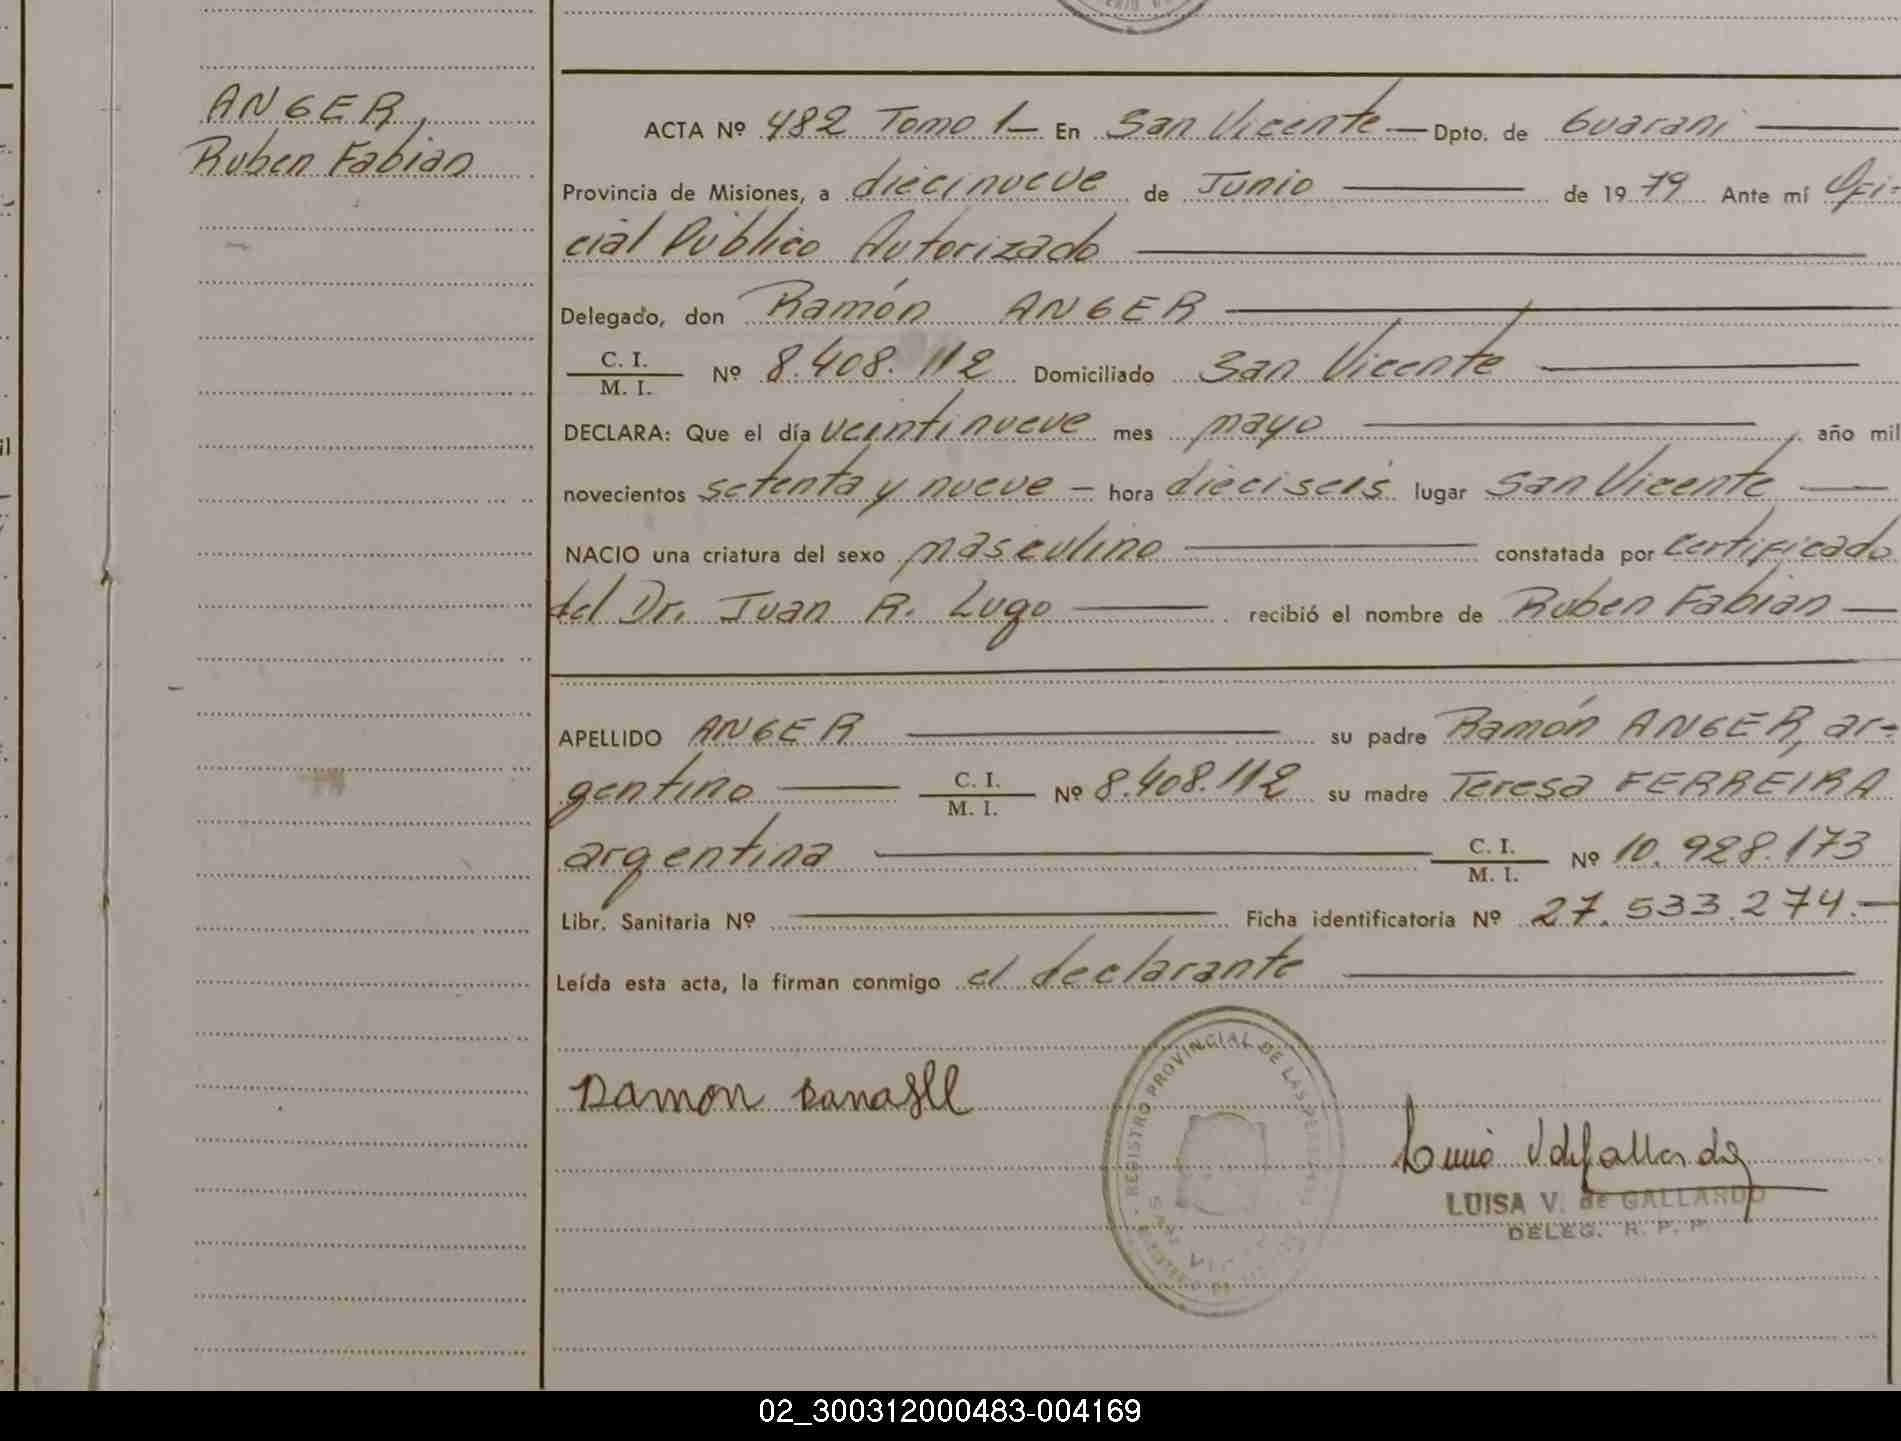 ANGER,
Ruben Fabian
ACTA Nº 482 Tomo 1 En San Vicente Dpto. de Guarani
Provincia de Misiones, a diecinueve de Junio de 1979 Ante mí Ofi-
cial Público Autorizado
Delegado, don Ramón ANGER
C. I.
M. I. Nº 8.408.112 Domiciliado San Vicente
DECLARA: Que el día veintinueve mes mayo año mil
novecientos setenta y nueve - hora dieciseis lugar San Vicente
NACIO una criatura del sexo masculino constatada por certificado
del Dr. Juan R. Lugo recibió el nombre de Ruben Fabian
APELLIDO ANGER su padre Ramón ANGER, ar-
gentino C. I. M. I. Nº 8.408.112 su madre Teresa FERREIRA
argentina C. I. M. I. Nº 10.928.173
Libr. Sanitaria Nº Ficha identificatoria Nº 27.533.274.-
Leída esta acta, la firman conmigo el declarante
REGISTRO PROVINCIAL DE LAS
LUISA V. de GALLARDO
DELEG. R. P. P.
02_300312000483-004169